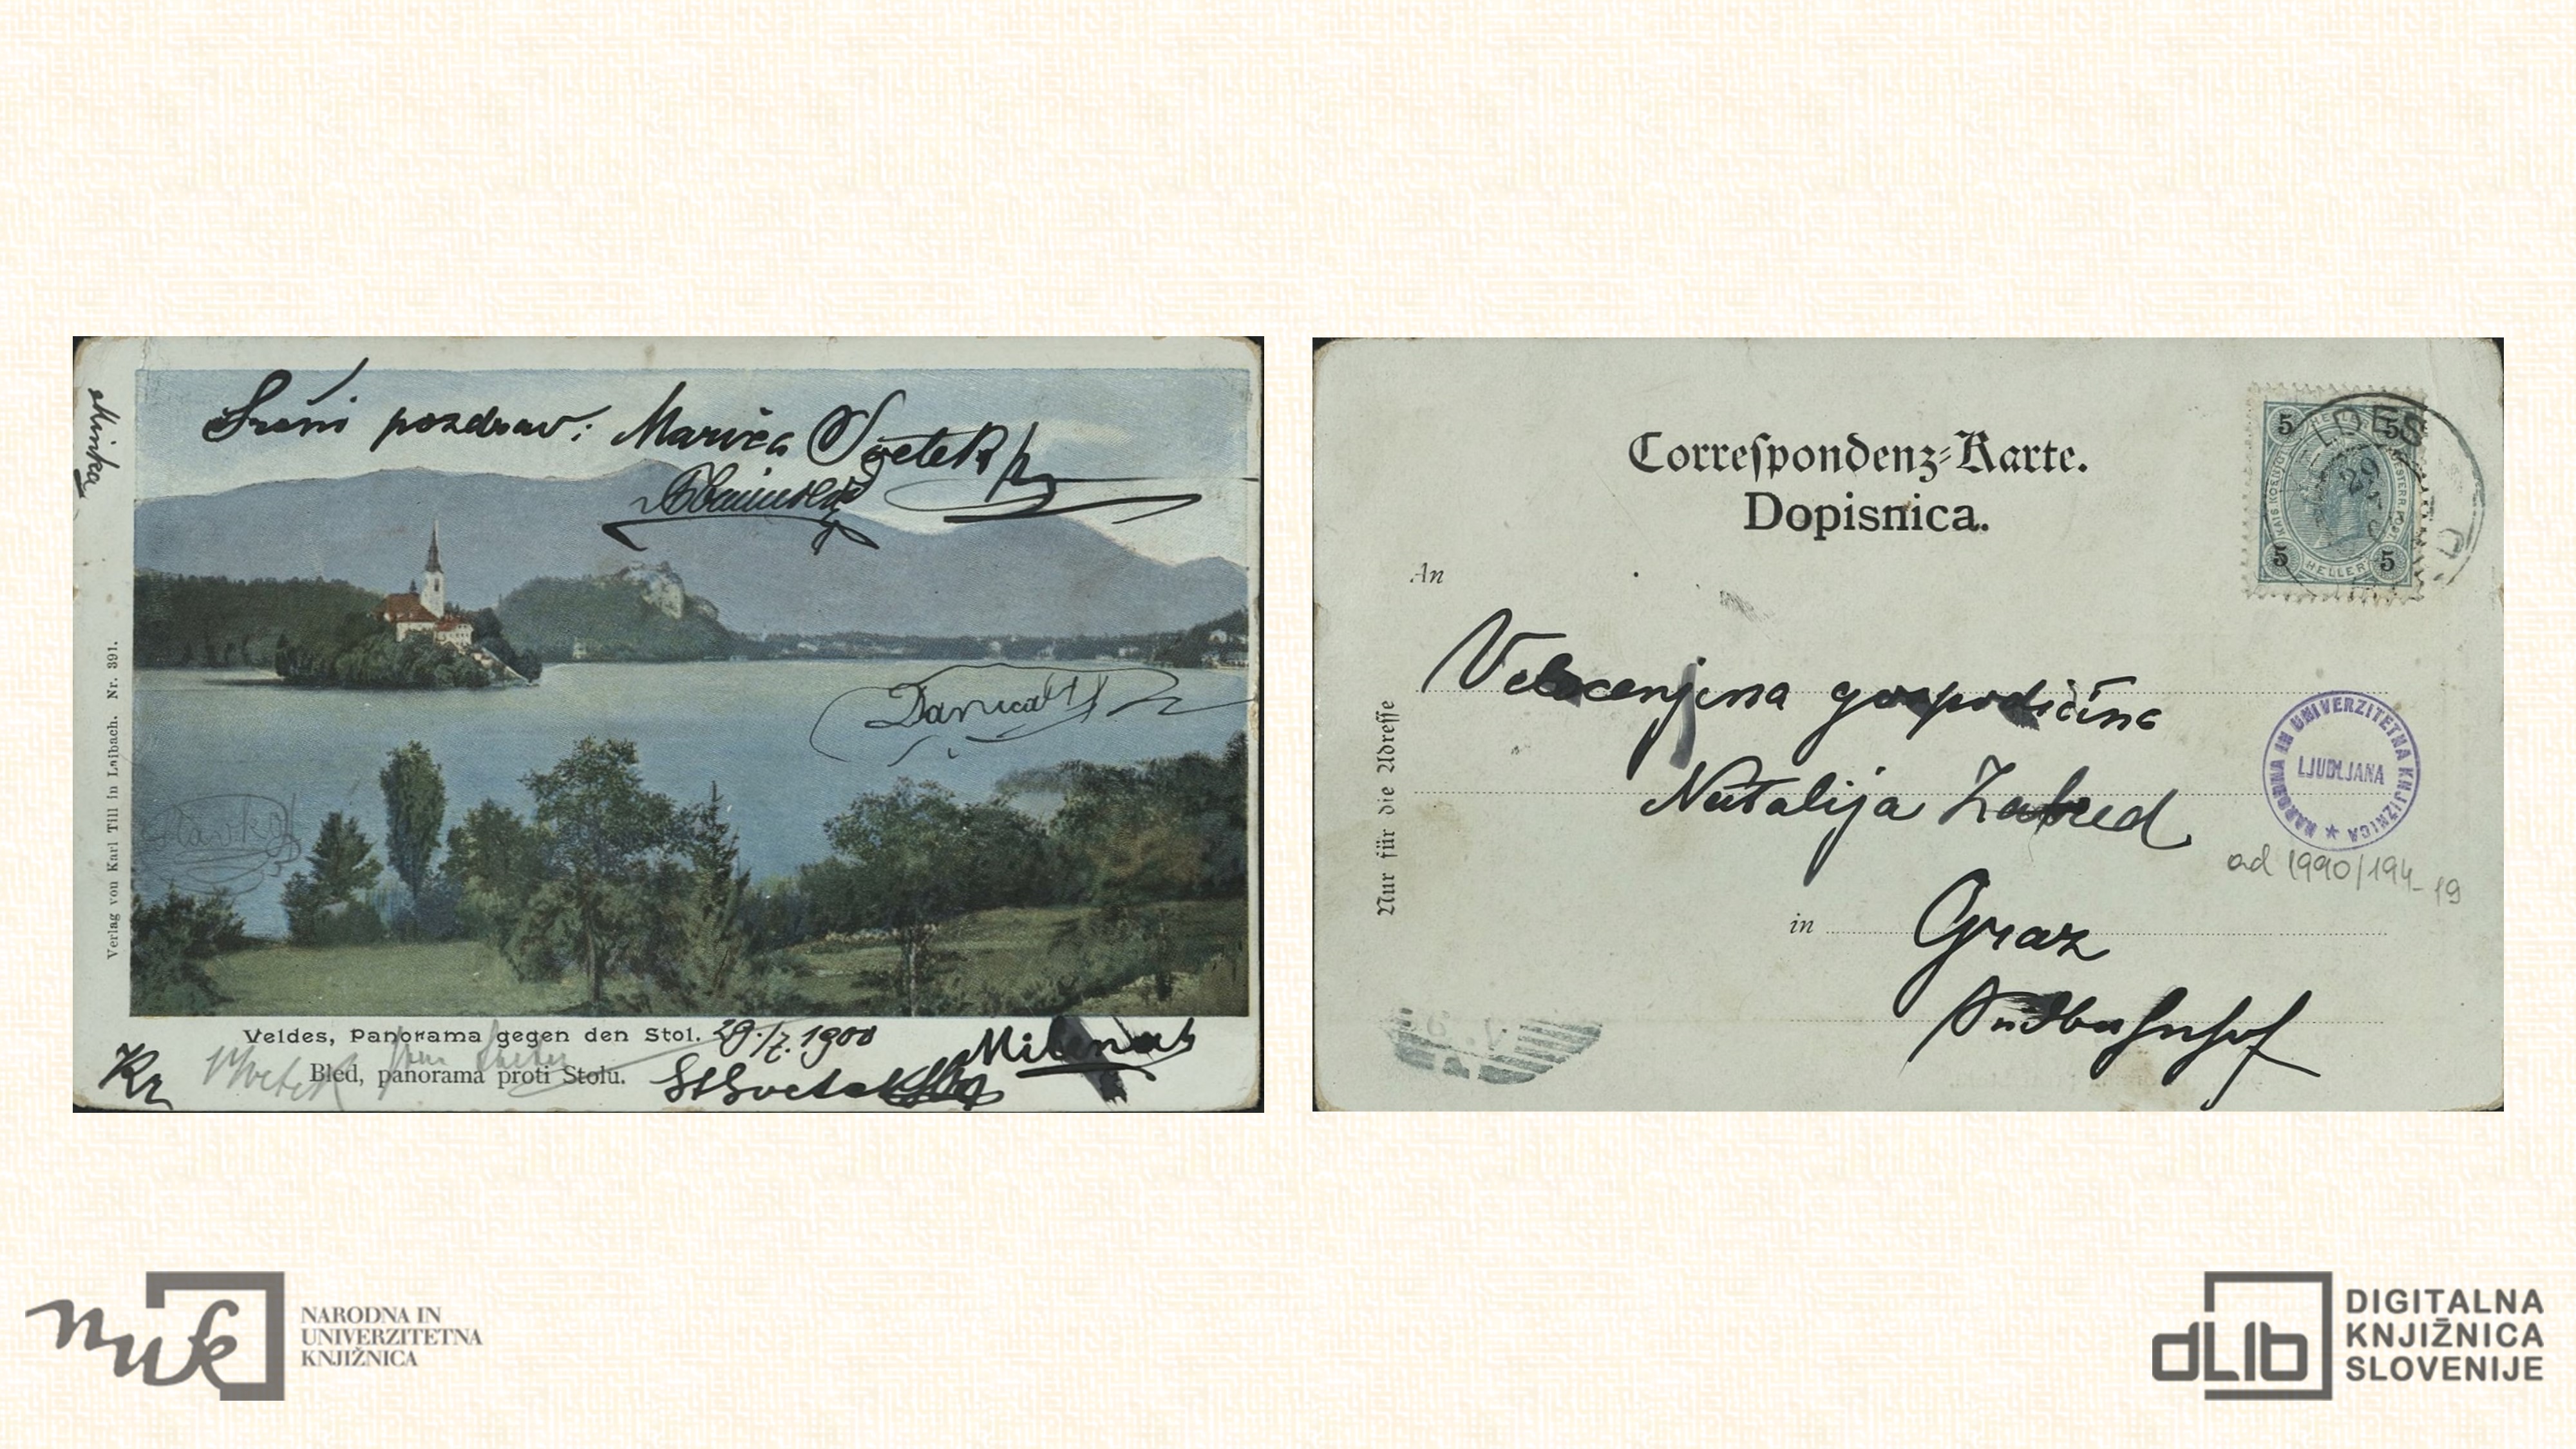 Srčni pozdrav: Marica Svetek
Minka
Danica
Slavko
Verlag von Karl Till in Laibach. Nr. 391.
Veldes, Panorama gegen den Stol. 29./7. 1900
Bled, panorama proti Stolu.
Milena
Svetek
Correspondenz-Karte.
Dopisnica.
An
Velecenjena gospodičina
Natalija Zabred
in Graz
Südbahnhof
Nur für die Adresse
5 5
5 HELLER 5
LDES
29
NARODNA IN UNIVERZITETNA KNJIŽNICA
LJUBLJANA
ad 1990/194-19
nuk
NARODNA IN
UNIVERZITETNA
KNJIŽNICA
dLIb
DIGITALNA
KNJIŽNICA
SLOVENIJE